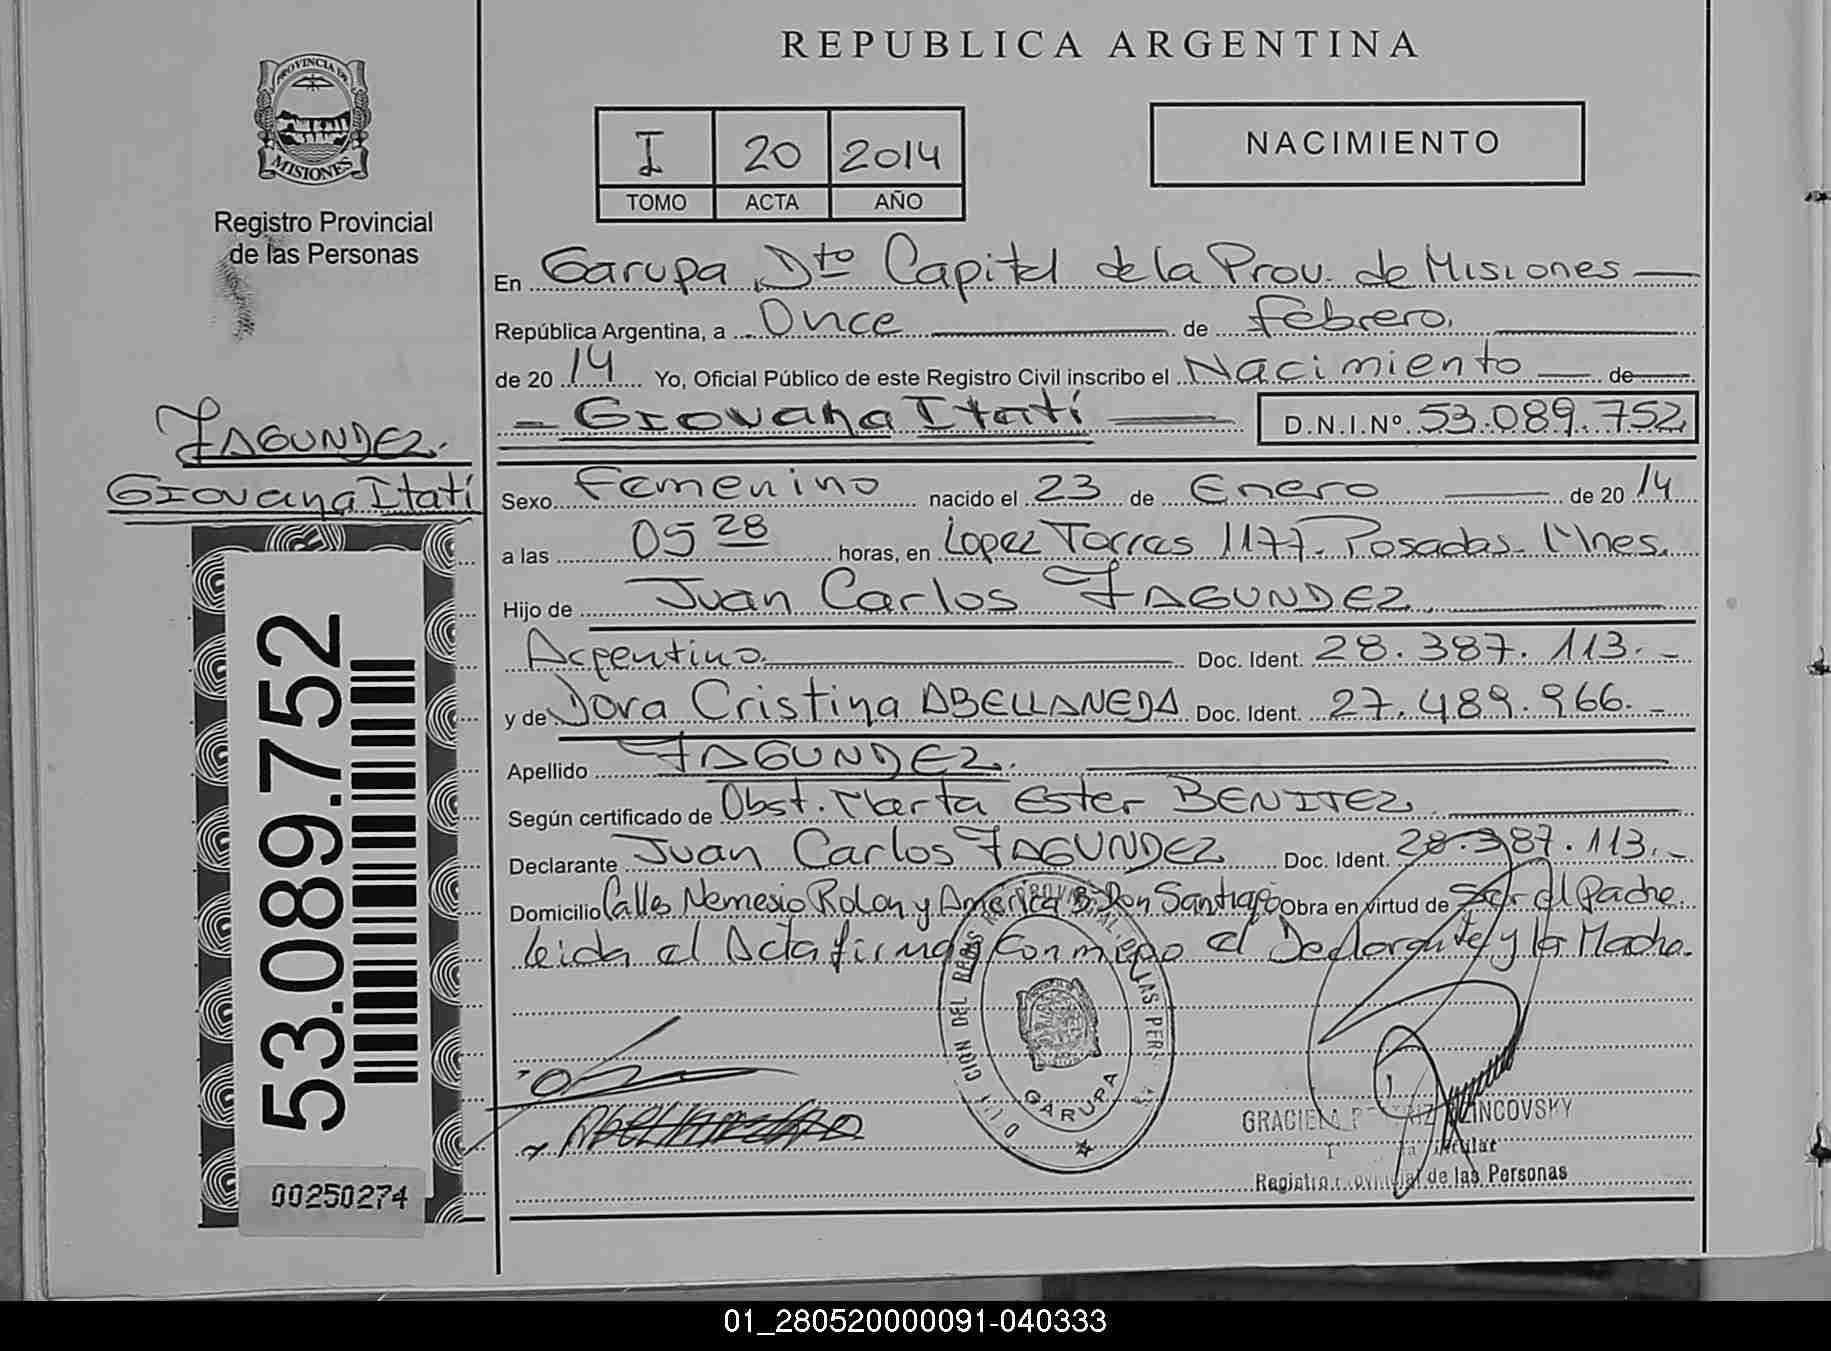 REPUBLICA ARGENTINA
PROVINCIA DE
MISIONES
Registro Provincial
de las Personas
I 20 2014
TOMO ACTA AÑO
NACIMIENTO
En Garupa Dto Capital de la Prov. de Misiones
República Argentina, a Once de Febrero.
de 20 14 Yo, Oficial Público de este Registro Civil inscribo el Nacimiento de
Giovana Itatí D.N.I.Nº 53.089.752
FAGUNDEZ.
Giovana Itatí
Sexo Femenino nacido el 23 de Enero de 20 14
a las 05 28 horas, en Lopez Torres 1177. Posadas. Mnes.
Hijo de Juan Carlos FAGUNDEZ
Argentino. Doc. Ident. 28.387.113.-
y de Dora Cristina ABELLANEDA Doc. Ident. 27.489.966.-
Apellido FAGUNDEZ.
Según certificado de Obst. Marta Ester BENITEZ
Declarante Juan Carlos FAGUNDEZ Doc. Ident. 28.387.113.-
Domicilio Calles Nemesio Rolon y America Bº Don Santiago Obra en virtud de Ser el Padre.
leida el Acta firman conmigo el Declarante y la Madre.
53.089.752
00250274
GARUPA
GRACIELA
Registro Provincial de las Personas
01_280520000091-040333